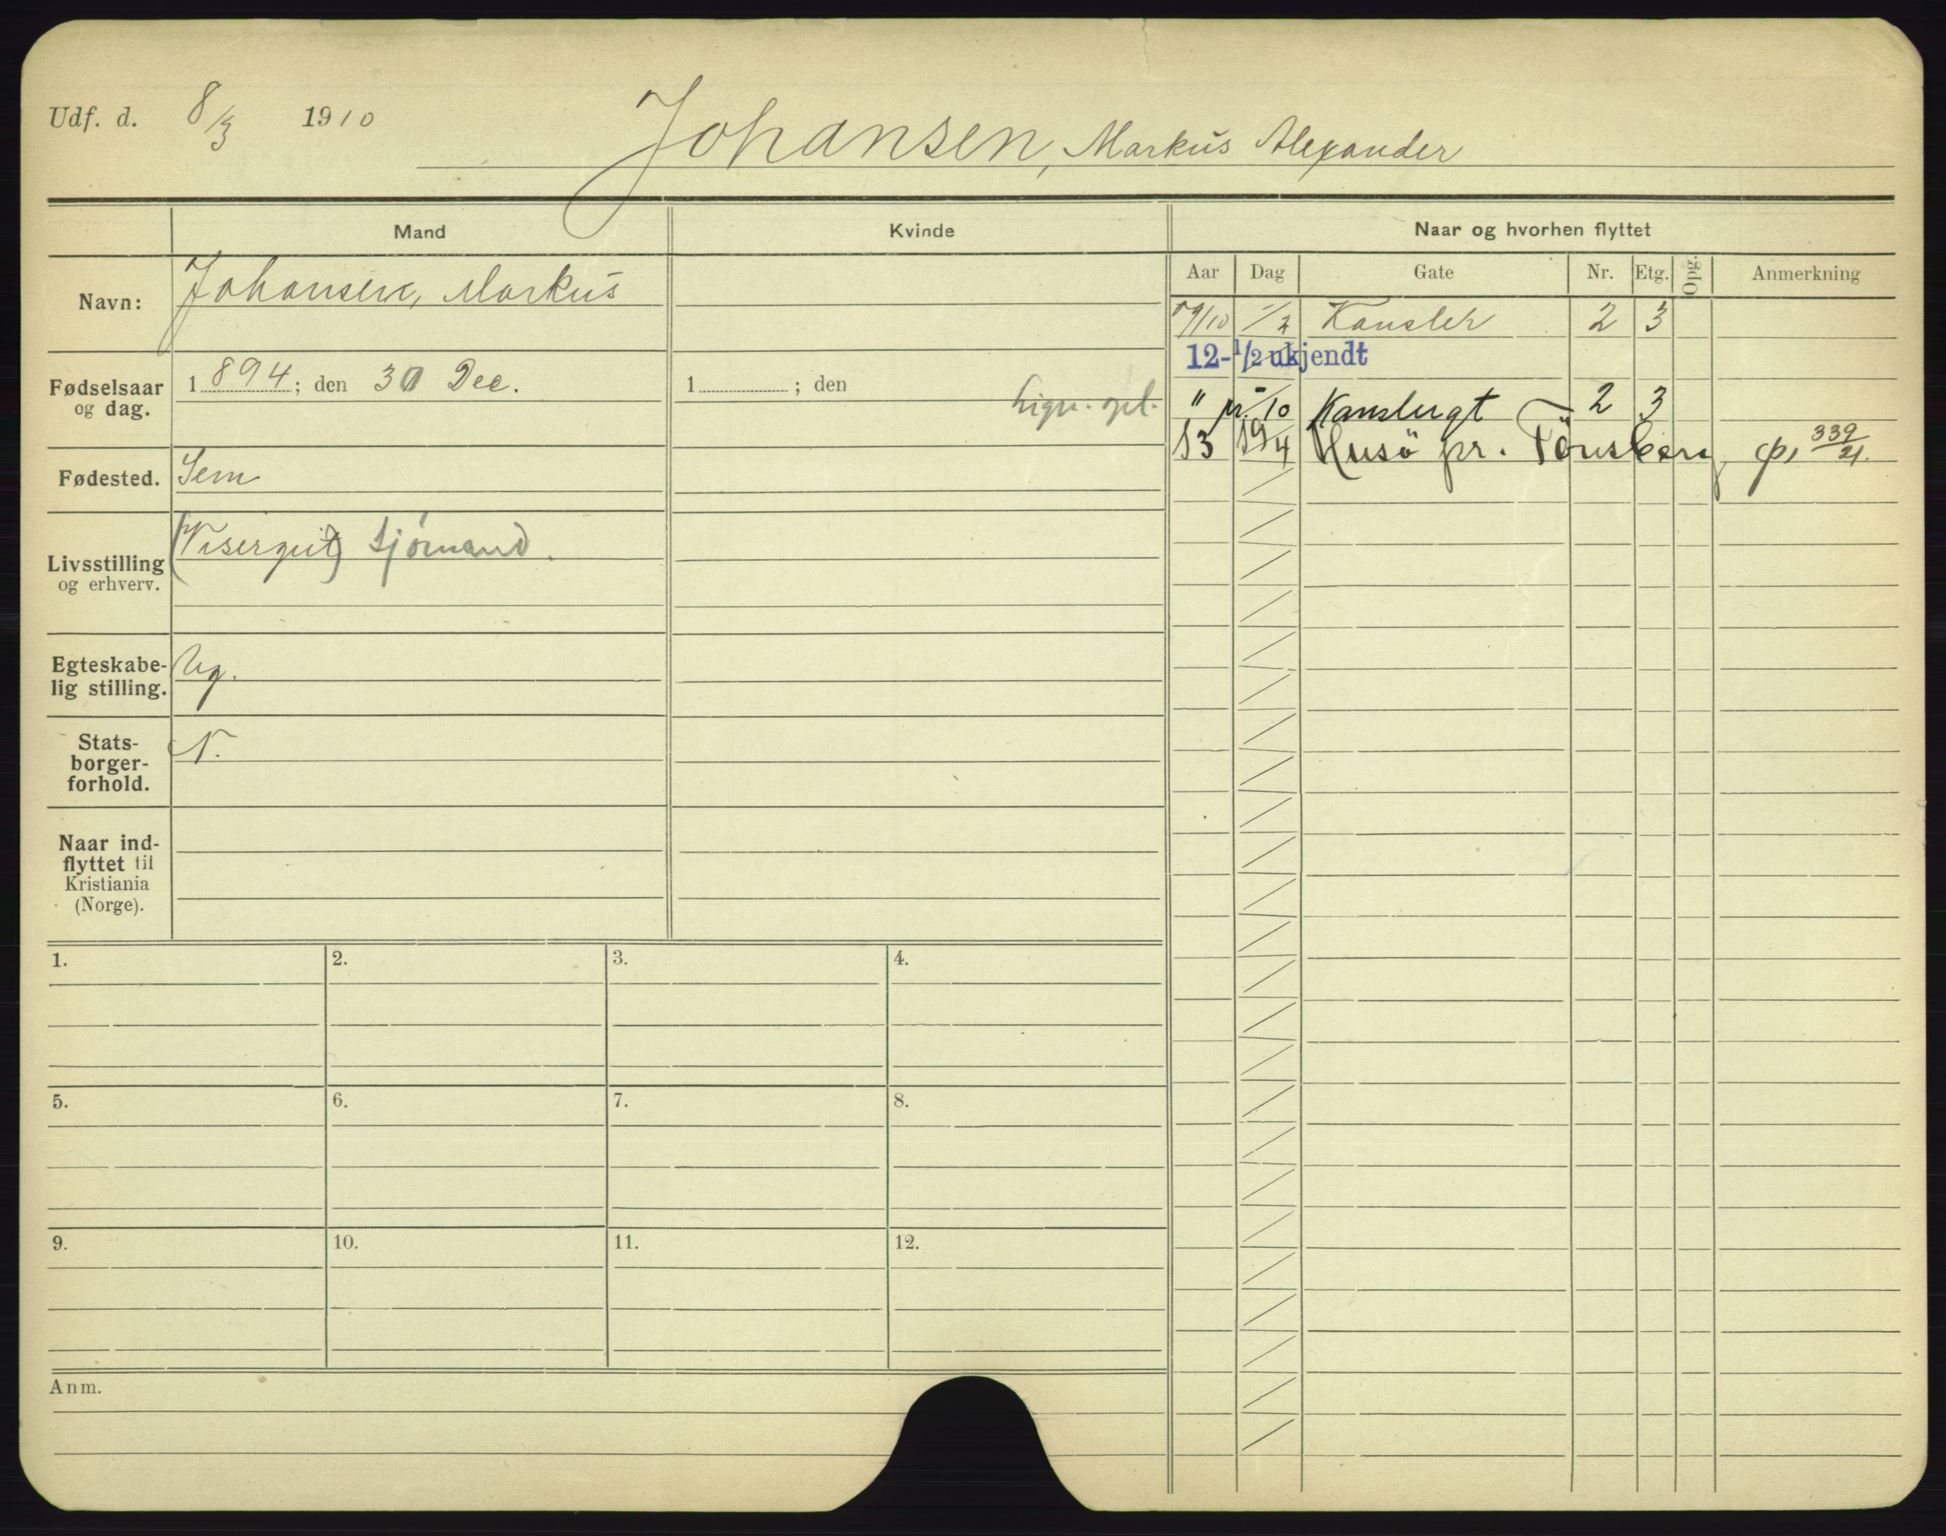 Udf. d. 8/3 1910
Johansen, Markus Alexander
Mand
Kvinde
Naar og hvorhen flyttet
Navn:
Johansen, Markus
Aar
Dag
Gate
Nr.
Etg.
Opg.
Anmerkning
09/10 1/2 Kansler 2 3
12-1/2 ukjendt
Fødselsaar
og dag.
1894; den 30 Dec.
1 ; den
" 10 Kanslergt 2 3
13 19/4 Husö pr. Tönsberg 339/21.
Fødested.
Sem
Livsstilling
og erhverv.
(Visergut) Sjømand.
Egteskabe-
lig stilling.
Ug.
Stats-
borger-
forhold.
N.
Naar ind-
flyttet til
Kristiania
(Norge).
1.
2.
3.
4.
5.
6.
7.
8.
9.
10.
11.
12.
Anm.